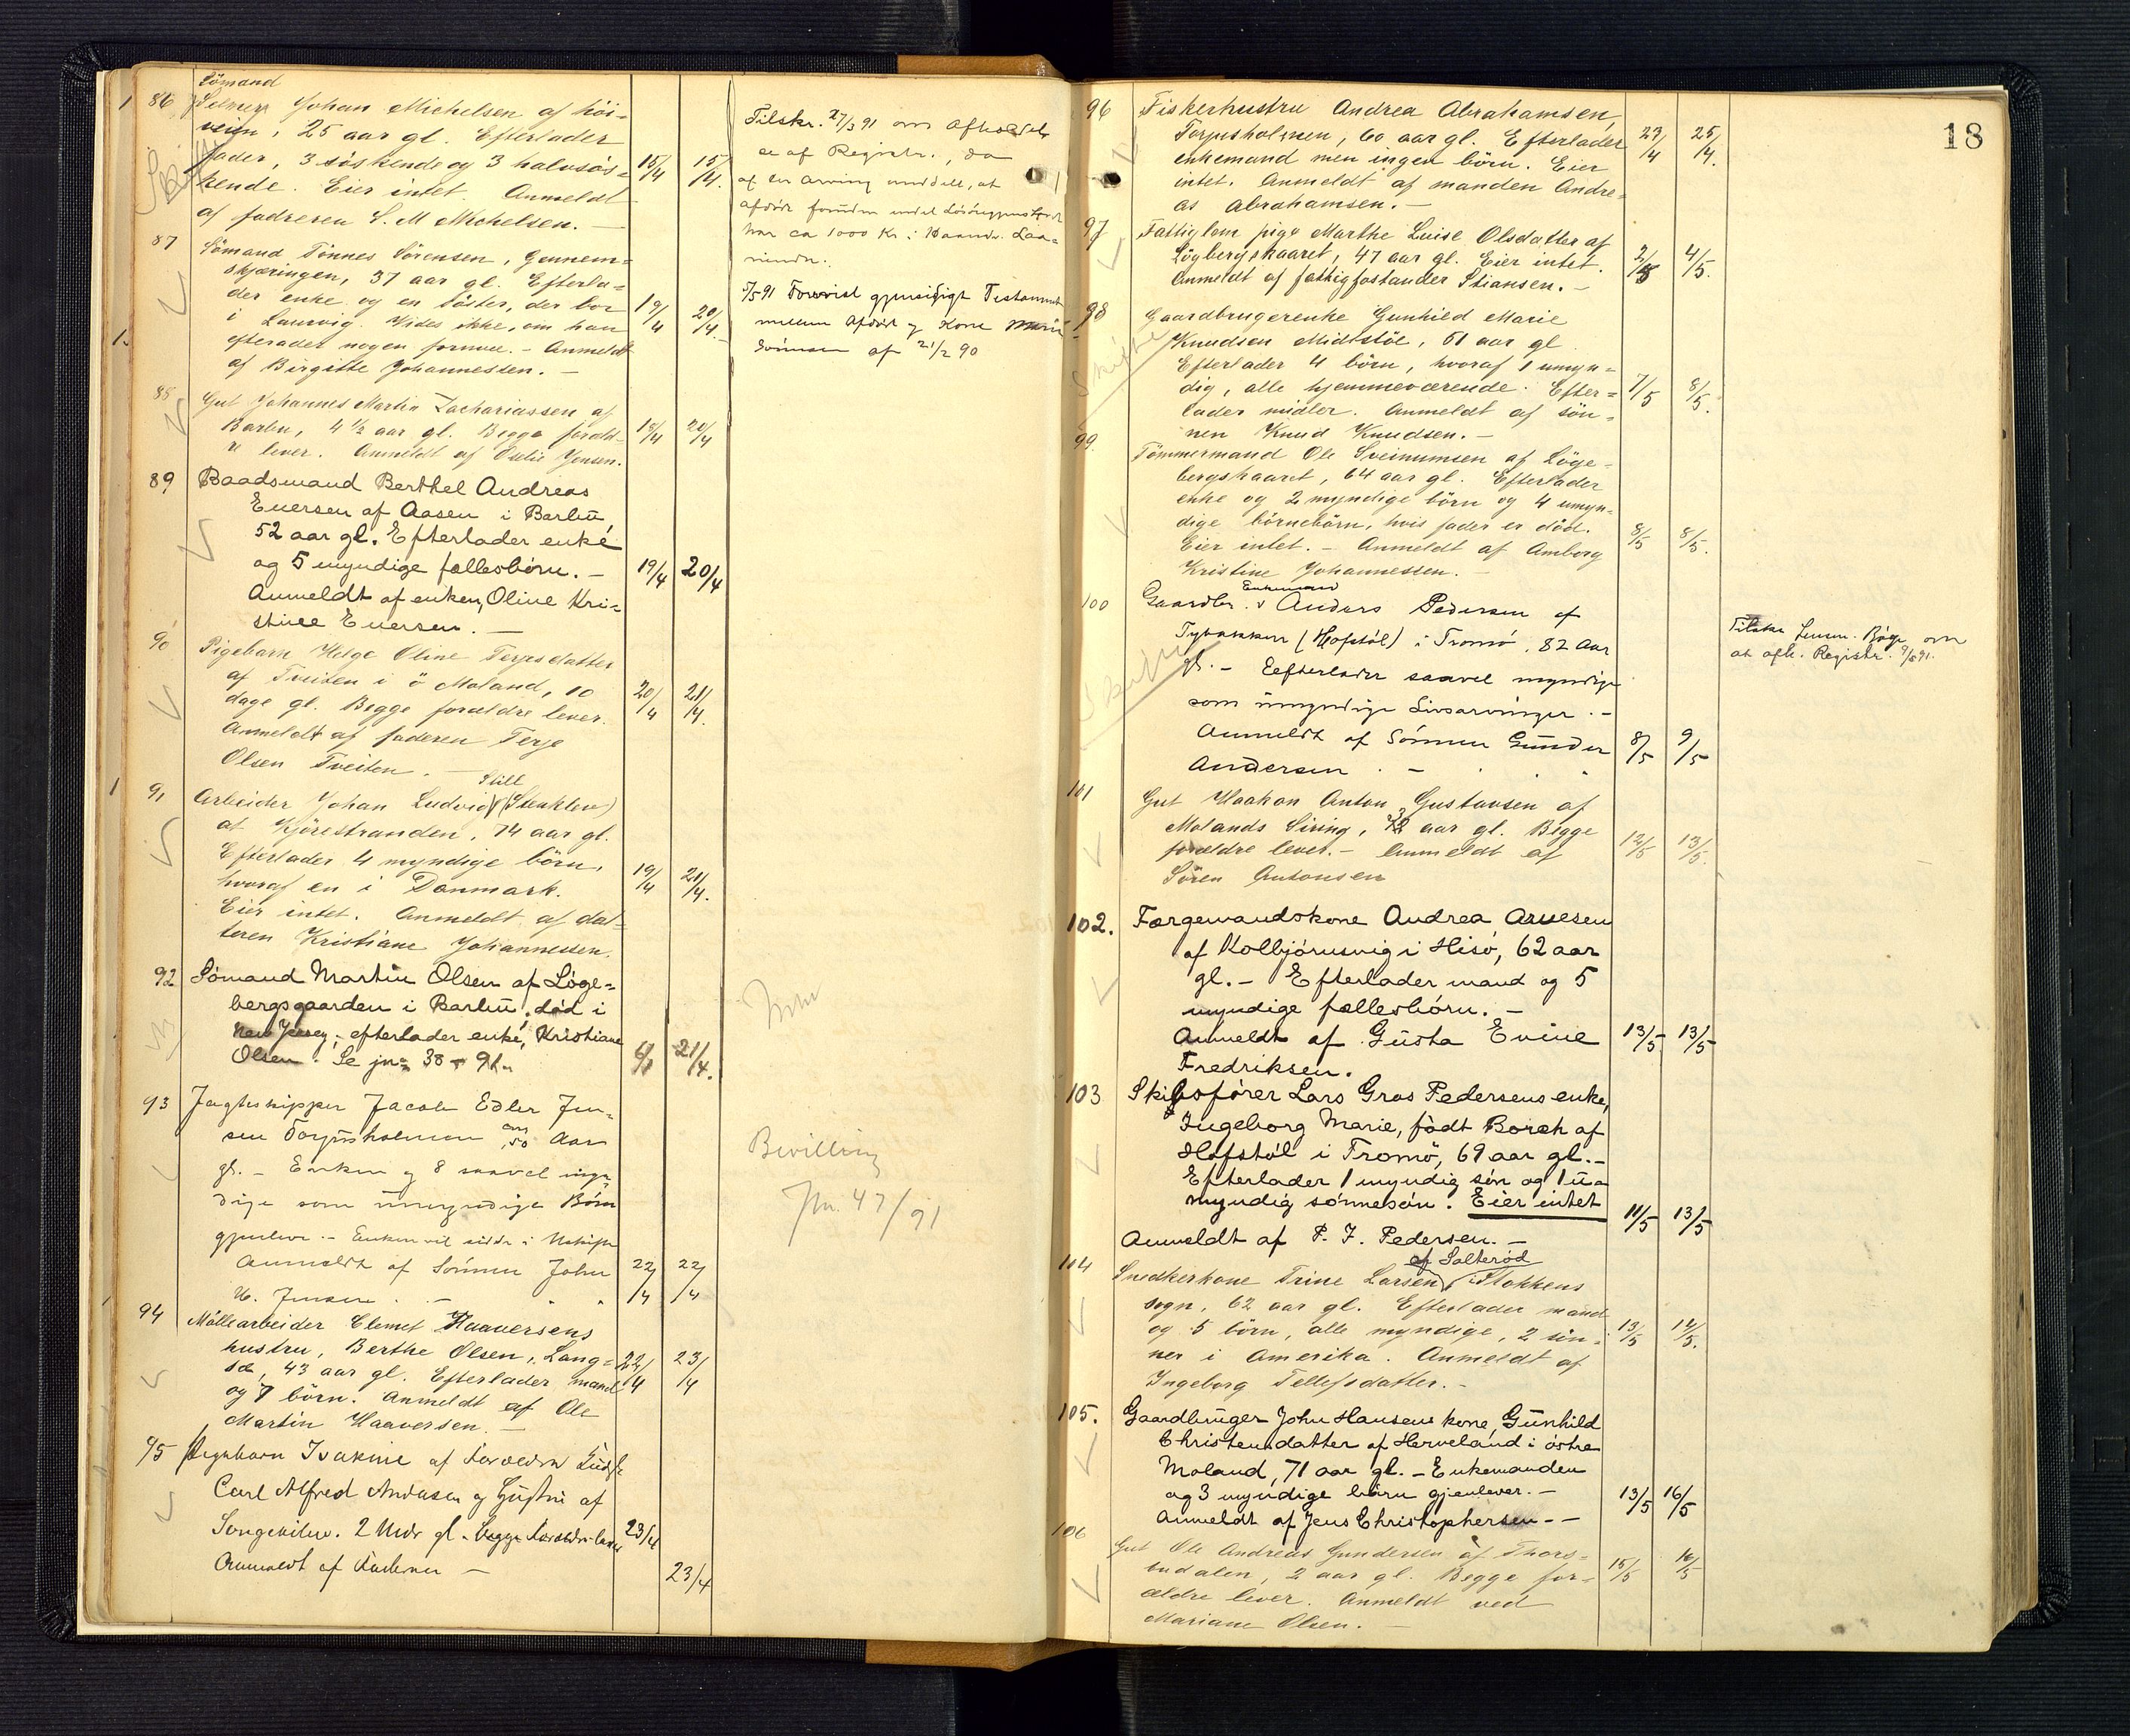 1
86
Sömand
Johan Michelsen af höi-
veien, 25 aar gl. Efterlader
fader, 3 söskende og 3 halvsös-
kende. Eier intet. Anmeldt
af faderen S. M Michelsen. —
15/4 15/4.
Tilskr. 27/3 91 om afholdelse
af Registr., da
af en Arving meddelt, at
afdöde foruden endel Lösöregjenstande
har ca 1000 Kr. i
87
Sömand Tönnes Sörensen, Gennem=
skjæringen, 37 aar gl. Efterla=
der enke og en söster, der bor
i Laurvig. Vides ikke, om han
efterlader nogen formue. - Anmeldt
af Birgitte Johannessen. —
19/4 20/4.
5/5 91 Forevist gjensidigt Testament
mellem Afdöde og Kone Marie
Sörensen af 21/2 90
1.
88
Gut Johannes Martin Zachariassen af
Barbu, 4 1/2 aar gl. Begge foræld-
re lever. Anmeldt af Oselie Jensen.
18/4 20/4
89
Baadsmand Berthel Andreas
Eversen af Aasen i Barbu,
52 aar gl. Efterlader enke
og 5 myndige fællesbörn. —
Anmeldt af enken, Oline Kri=
stine Eversen. —
19/4 20/4
90
Pigebarn Helga Oline Terjesdatter
af Tveiten i ö Moland, 10
dage gl. Begge forældre lever.
Anmeldt af faderen Terje
Olsen Tveiten. —
20/4 21/4.
1
91
Still
Arbeider Johan Ludvig (Stenklev)
at Kjörestranden, 74 aar gl.
Efterlader 4 myndige börn,
hvoraf en i Danmark.
Eier intet. Anmeldt af dat-
teren Kristiane Johannessen.
19/4 21/4.
92
Sömand Martin Olsen af Löge=
bergsgaarden i Barbu, död i
New Jersey; efterlader enke, Kristiane
Olsen. Se jn= 38 - 91.
21/4.
93
Jagtskipper Jacob Edler Jen-
sen Torjusholmen, 50 Aar
gl. - Enken og 8 saavel myn
dige som umyndige Börn
gjenlever. - Enken vil sidde i Uskifte
Anmeldt af Sönnen John
U. Jensen. —
22/4 22/4
Bevilling
Jn. 47/91
94
Möllearbeider Clemet Haaversens
hustru, Berthe Olsen, Lang=
sæ, 43 aar gl. Efterlader mand
og 7 börn. Anmeldt af Ole
Martin Haaversen. —
22/4 23/4
95
Pigebarn Isakine af Forældre
Carl Alfred Andersen og Gustine af
Songekilen. 2 Mdr gl. Begge Forældre lever
Anmeldt af Faderen —
23/4
23/4
18
96
Fiskerhustru Andrea Abrahamsen,
Torjusholmen, 60 aar gl. Efterlader
enkemand men ingen börn. Eier
intet. Anmeldt af manden Andre=
as Abrahamsen. —
23/4 25/4.
97
Fattiglem pige Marthe Luise Olsdatter af
Lögbergskaaret, 47 aar gl. Eier intet.
Anmeldt af fattigforstander Stiansen. —
2/5 4/5.
98
Gaardbrugerenke Gunhild Marie
Knudsen Midtstöl, 51 aar gl.
Efterlader 4 börn, hvoraf 1 umyn=
dig, alle hjemmeværende. Efter=
lader midler. Anmeldt af sön=
nen Knud Knudsen. —
7/5 8/5.
Skifte
99.
Tömmermand Ole Sveinumsen af Löge-
bergskaaret, 64 aar gl. Efterlader
enke og 2 myndige börn og 4 umyn-
dige börnebörn, hvis fader er död.
Eier intet. - Anmeldt af Amborg
Kristine Johannessen. —
8/5 8/5.
100
Enkemand
Gaardbr. Anders Pedersen af
Tybakken (Hofstöl) i Tromö, 82 Aar
gl. - Eefterlader saavel myndige
som umyndige Livsarvinger. -
Anmeldt af Sönnen Gunder
Andersen. —
8/5 9/5
Tilskr. Lensm. Böge om
at afh. Registr. 9/5 91.
101
Gut Haakon Anton Gustavsen af
Molands Siring, aar gl. Begge
forældre lever. - Anmeldt af
Sören Antonsen
12/5 13/5.
102.
Færgemandskone Andrea Arnesen
af Kolbjörnsvig i Hisö, 62 aar
gl. - Efterlader mand og 5
myndige fællesbörn. —
Anmeldt af Gusta Evine
Fredriksen.
13/5 13/5
103
Skibsförer Lars Gros Pedersens enke,
Ingeborg Marie, födt Boreh af
Hofstöl i Tromö, 69 aar gl. -
Efterlader 1 myndig sön og 1 u=
myndig sönnesön. Eier intet
Anmeldt af P. J. Pedersen. —
11/5 13/5
104
af Salteröd
Snedkerkone Trine Larsen i Stokkens
sogn, 62 aar gl. Efterlader mand
og 5 börn, alle myndige, 2 sön-
ner i Amerika. Anmeldt af
Ingeborg Tellefsdatter. —
13/5 14/5.
105.
Gaardbruger John Hansens kone, Gunhild
Christensdatter af Herveland i östre
Moland, 71 aar gl. - Enkemanden
og 3 myndige börn gjenlever. —
Anmeldt af Jens Christophersen - -
13/5 16/5
106
Gut Ole Andreas Gundersen af Thors=
budalen, 2 aar gl. Begge for=
ældre lever. Anmeldt ved
Mariane Olsen. —
15/5 16/5